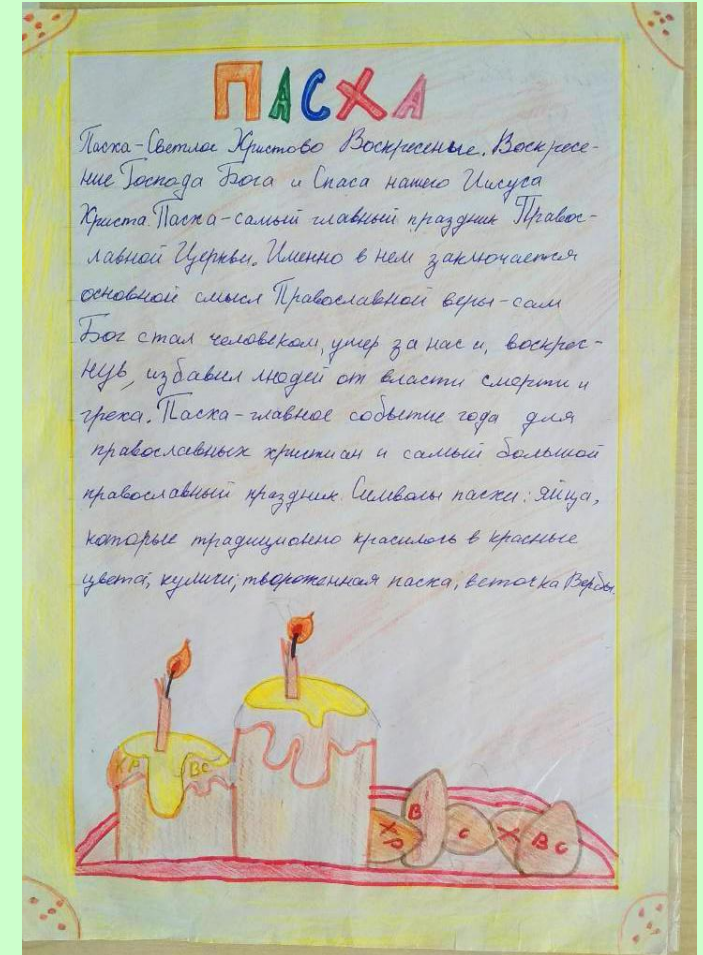 ПАСХА
Пасха - Светлое Христово Воскресенье. Воскресе-
ние Господа Бога и Спаса нашего Иисуса
Христа. Пасха - самый главный праздник Правос-
лавной Церкви. Именно в нем заключается
основной смысл Православной веры - сам
Бог стал человеком, умер за нас и, воскрес-
нув, избавил людей от власти смерти и
греха. Пасха - главное событие года для
православных христиан и самый большой
православный праздник. Символы пасхи: яйца,
которые традиционно красилось в красные
цвета, куличи, твороженная пасха, веточка Вербы.
ХР ВС
ХР В С Х ВС